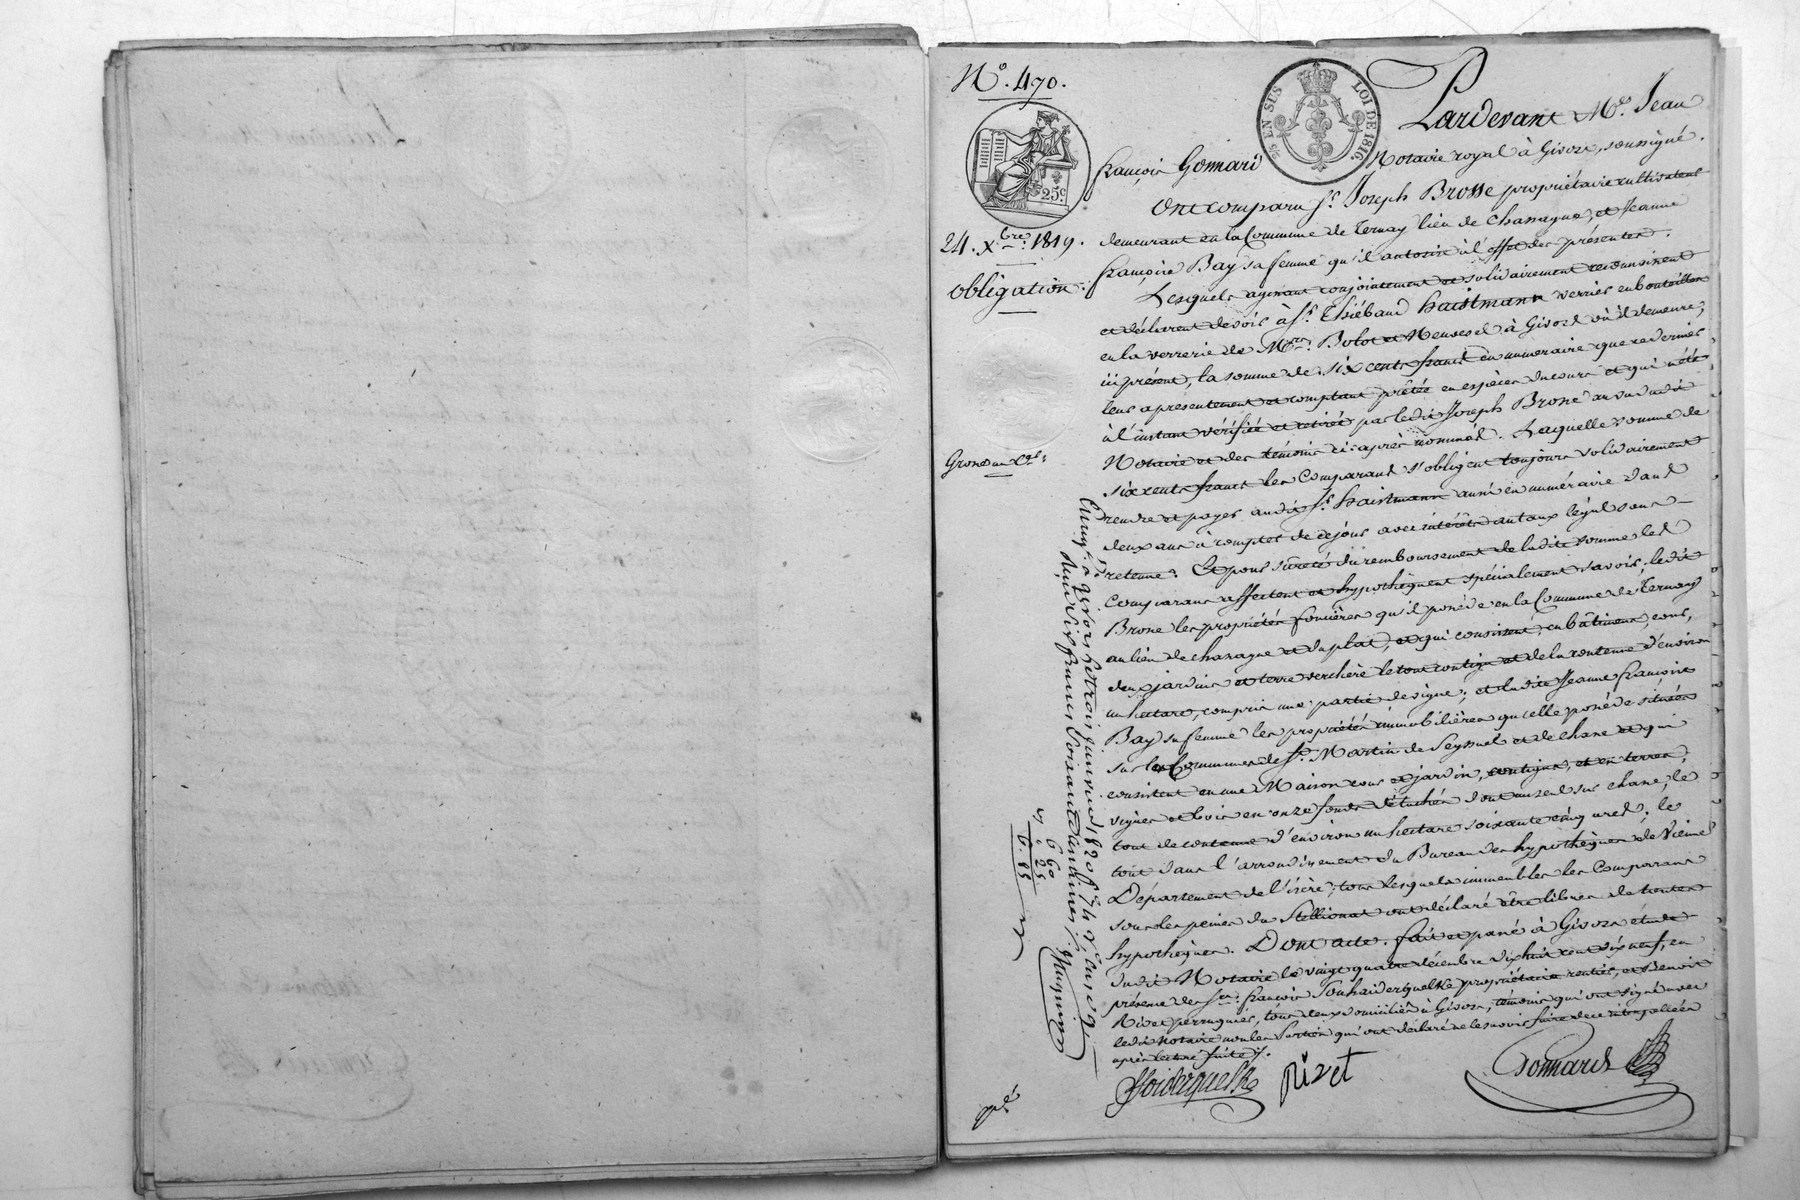 N.° 470.
25 c.
2/5 EN SUS LOI DE 1816
24. Xbre. 1819.
Obligation.
Grosse en
Pardevant Me. Jean
françois Gonnard Notaire royal à Givors, soussigné.
Ont comparu sr. Joseph Brosse propriétaire cultivateur
demeurant en la Commune de Ternay lieu de Chassagne, et Jeanne
françoise Bay sa femme qu'il autorise à l'effet des présentes.
Lesquels agissant conjointement et solidairement reconnoissent
et déclarent devoir à sr. Thiébaud haistmann verrier en bouteilles
en la verrerie de Mrs. Bolot et Neuvesel à Givors où il demeure,
ici présent, la somme de six cents francs en numéraire que ce dernier
leur a présentement et comptant prêtée en espèces du cours et qui a été
à l'instant vérifiée et retirée par ledit Joseph Brosse au vu dudit
Notaire et des témoins ci-après nommés. Laquelle somme de
six cents francs les Comparans s'obligent toujours solidairement
rendre et payer audit sr. haistmann aussi en numéraire dans
deux ans à compter de ce jour avec intérêts au taux légal sans
retenue. Et pour sûreté du remboursement de ladite somme les
Comparans affectent et hypothèquent spécialement savoir, ledit
Brosse les propriétés foncières qu'il possède en la Commune de Ternay
au lieu de chassagne et du plat, et qui consistent, en bâtiment, cour,
deux jardins et terre verchère le tout contigu et de la contenue d'environ
un hectare, compris une partie de vigne; et ladite Jeanne françoise
Bay sa femme les propriétés immobilières qu'elle possède situées
sur les Communes de St. Martin de Seyssuel et de chasse et qui
consistent en une Maison cour et jardin, contigus, et en terres,
vignes et bois en onze fonds détachés dont un seul sur chasse, le
tout de contenue d'environ un hectare soixante cinq ares; le
tout dans l'arrondissement du Bureau des hypothèques de Vienne
Département de l'isère; tous lesquels immeubles les Comparans
sous les peines du Stellionat ont déclaré être libres de toutes
hypothèques. Dont acte. fait et passé à Givors étude
dudit Notaire le vingt quatre décembre dix huit cent dix neuf, en
présence des srs. françois propriétaire rentier, et Benoit
Rivet perruquier, tous deux domiciliés à Givors, témoins qui ont signé avec
ledit Notaire non les Parties qui ont déclaré ne le savoir faire de ce interpellées
après lecture faite.
Rivet
Gonnard
Enregé. à Givors le trois janvier 1820 f° 74
Reçu six francs soixante centimes
6 60
" 25
6. 85